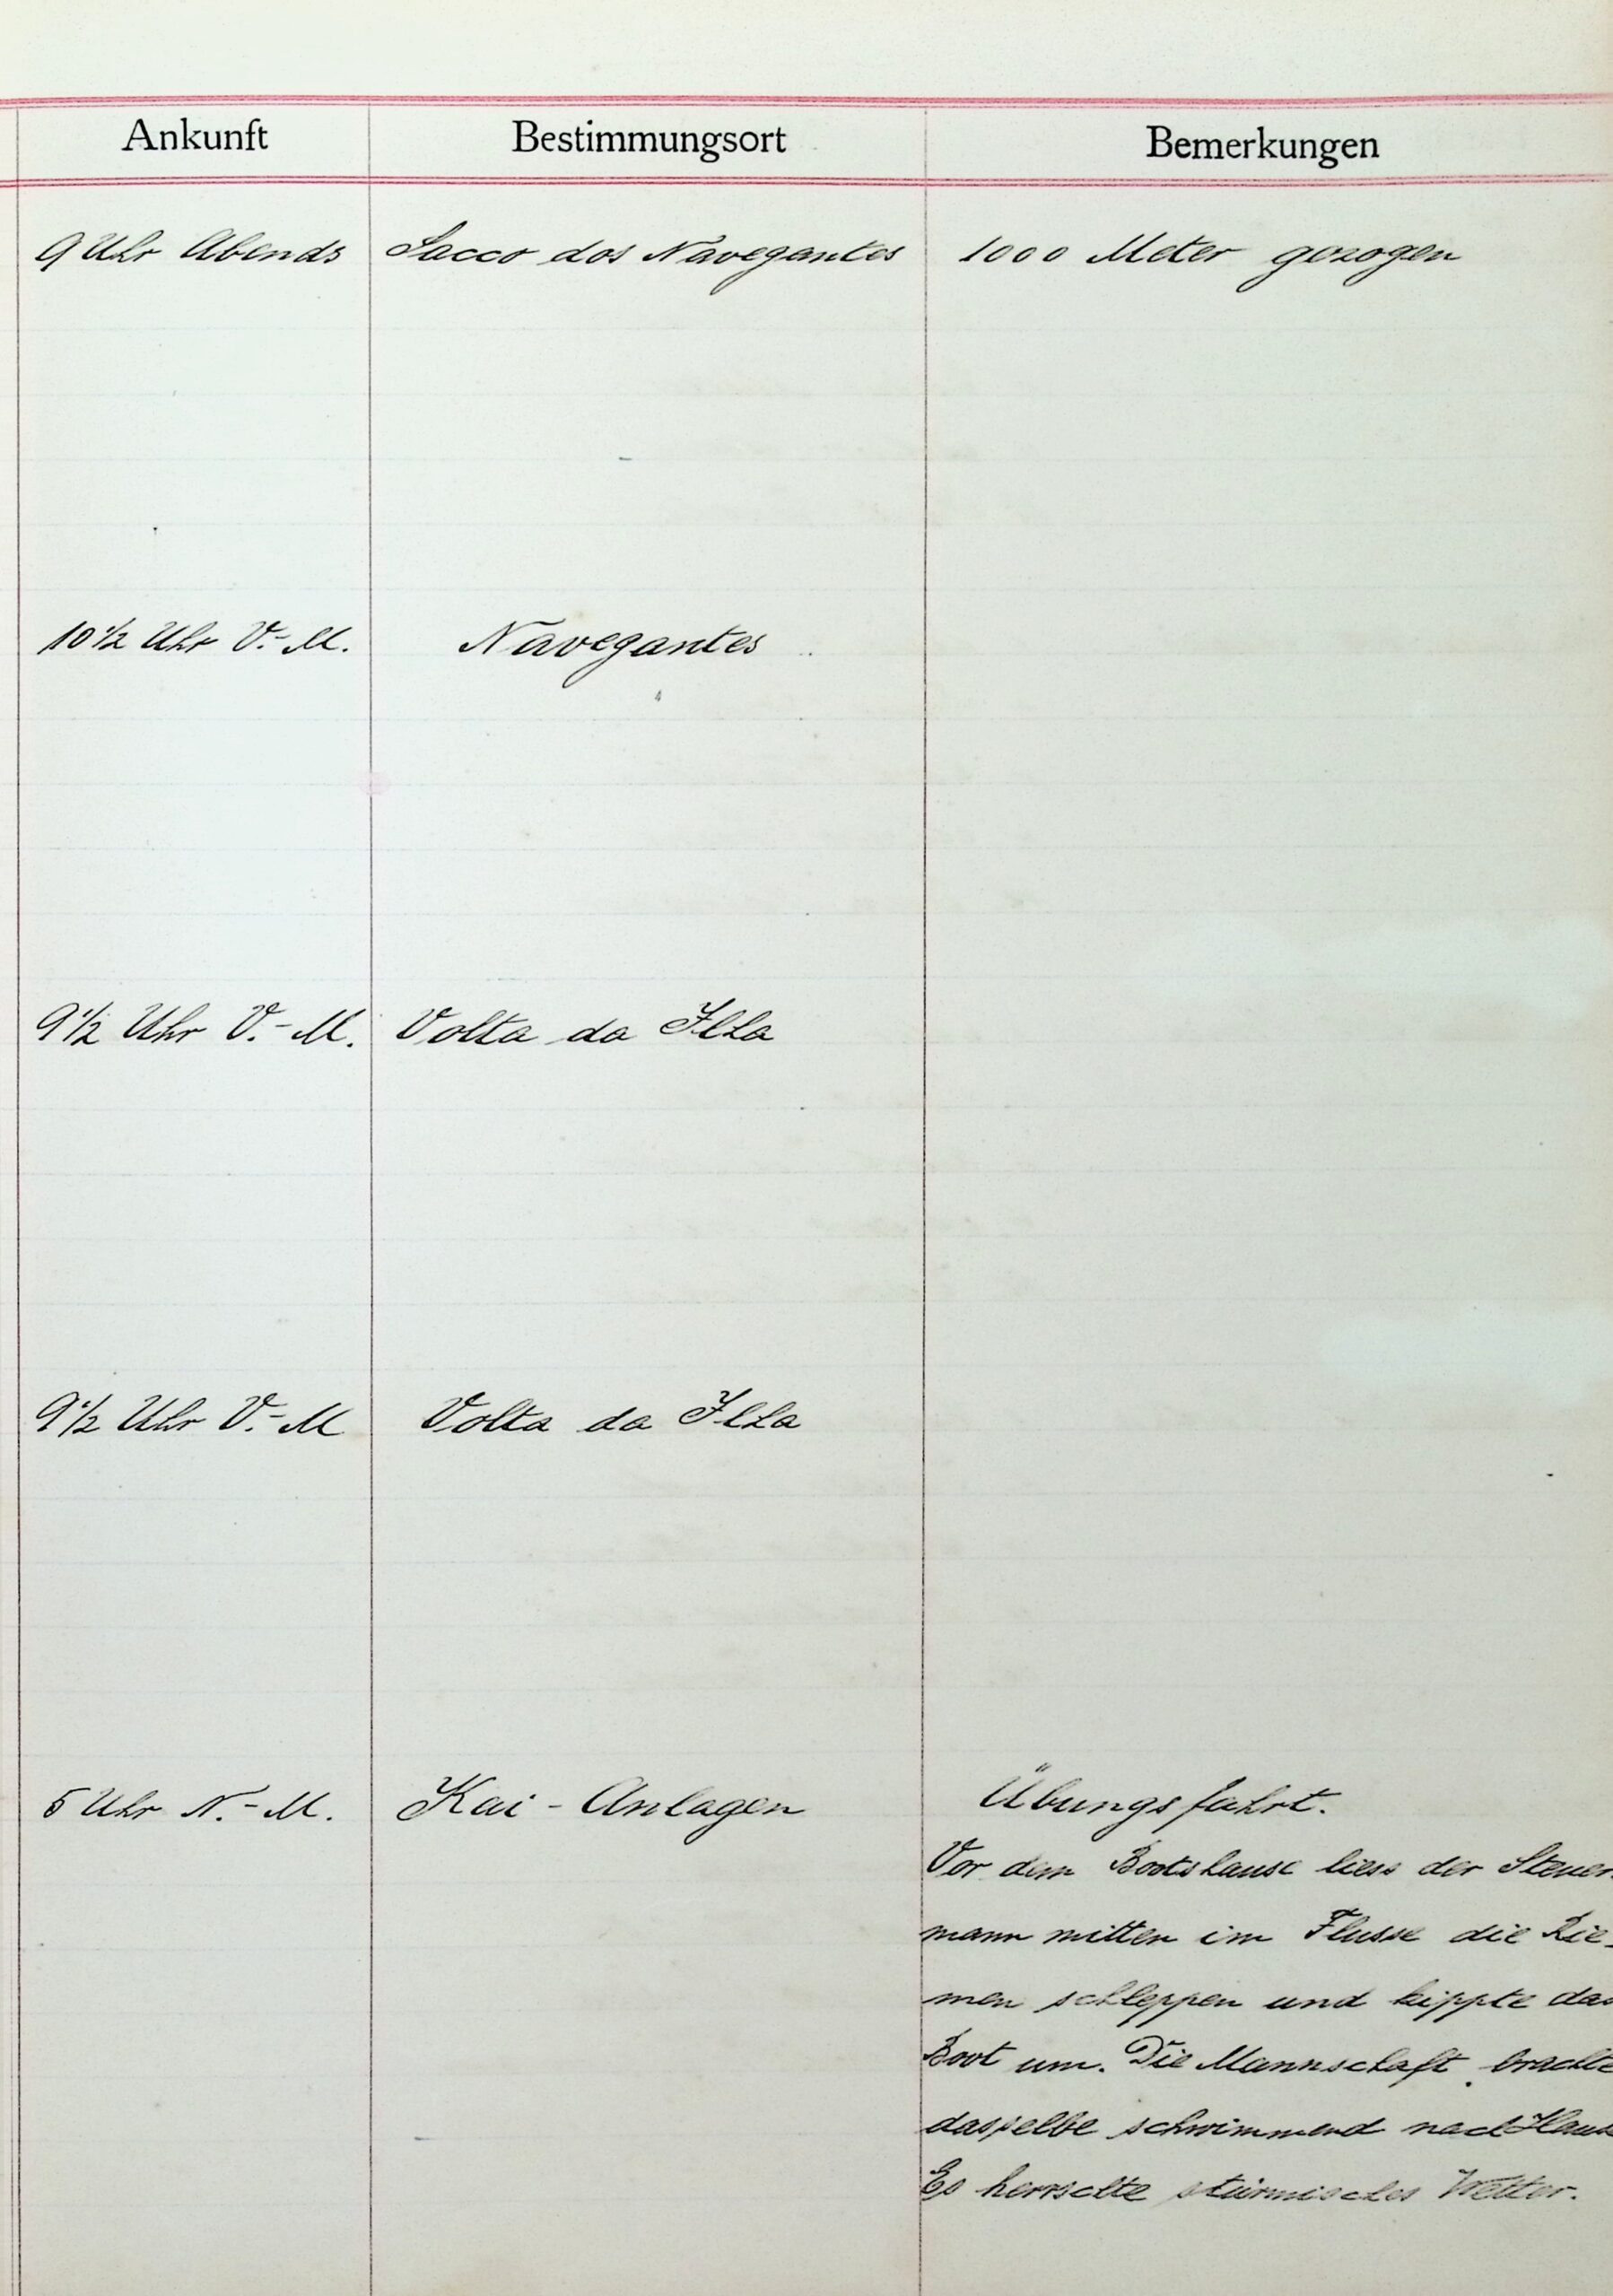 Ankunft Bestimmungsort Bemerkungen
9 Uhr Abends Sacco dos Navegantes 1000 Meter gezogen
10 1/2 Uhr V.-M. Navegantes
9 1/2 Uhr V.-M. Volta da Ilha
9 1/2 Uhr V.-M Volta da Ilha
5 Uhr N.-M. Kai-Anlagen Übungsfahrt.
Vor dem Bootshause liess der Steuer-
mann mitten im Flusse die Rie-
men schleppen und kippte das
Boot um. Die Mannschaft brachte
dasselbe schwimmend nach Haus
Es herrschte stürmisches Wetter.